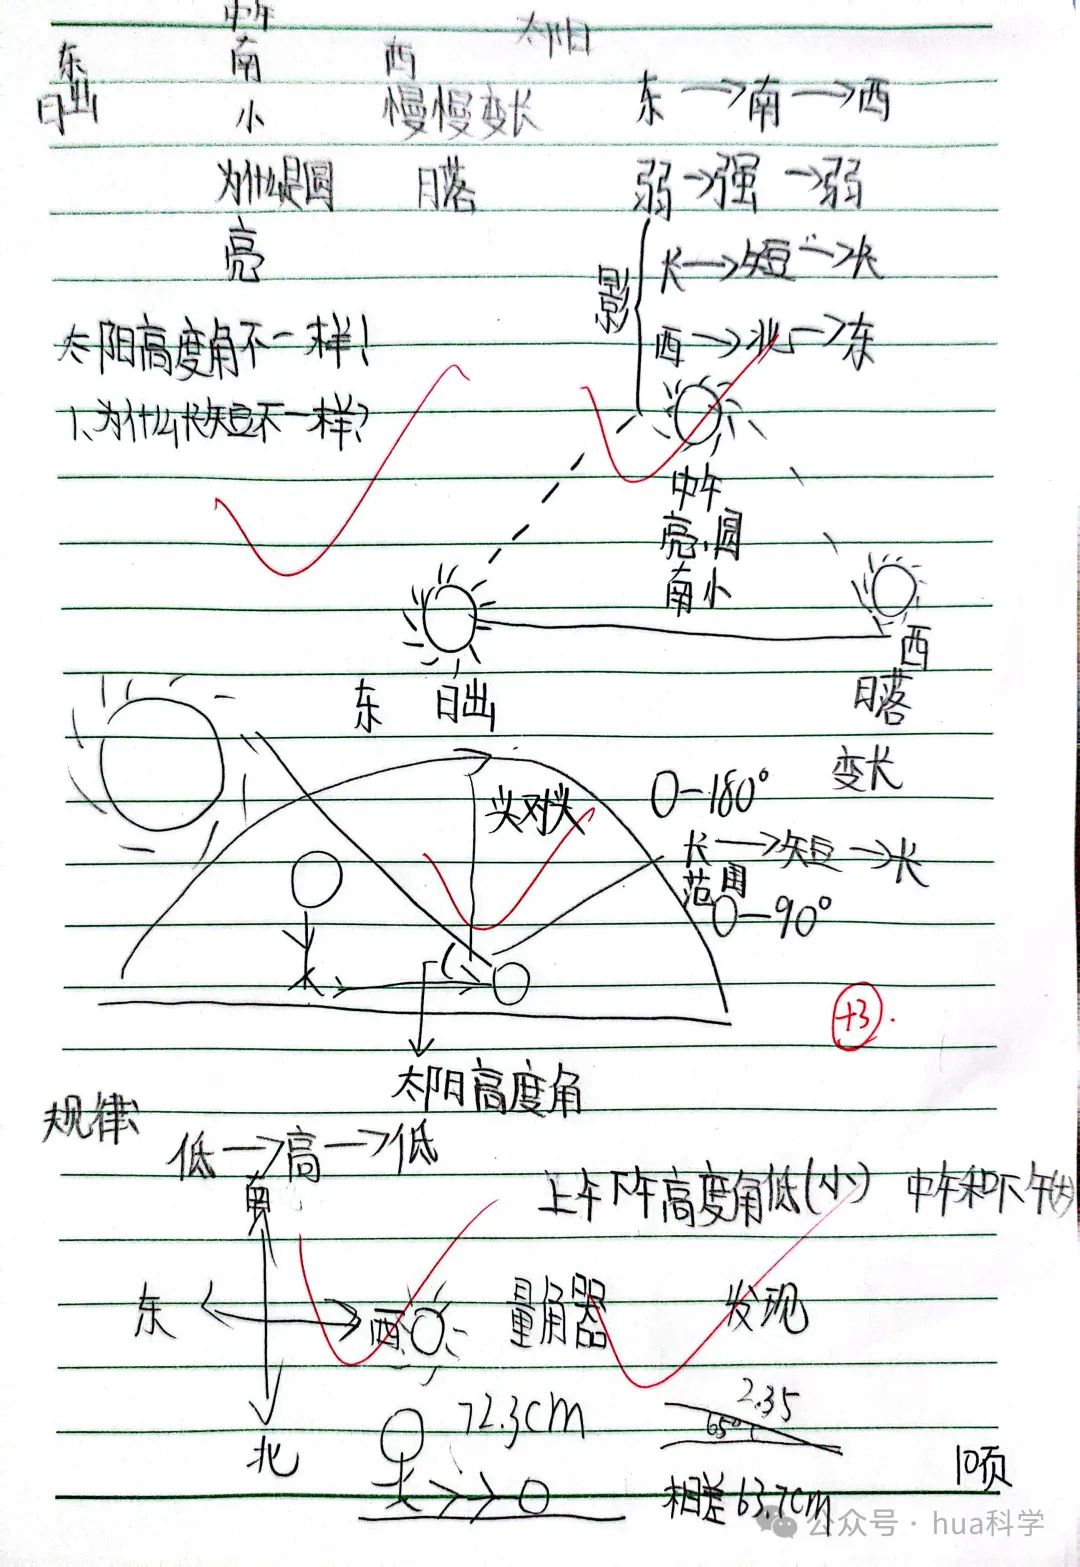 中午
太阳
东
南
西
日出
小
慢慢变长
东→南→西
为什么是圆
日落
弱→强→弱
亮
影
长→短→长
太阳高度角不一样!
西→北→东
1、为什么长短不一样?
中午
亮,圆
南小
西
东
日出
日落
变长
0-180°
头对头
长→短→长
范围
0-90°
+3
太阳高度角
规律
低→高→低
南
上午下午高度角低(小)
中午和下午(大)
东
西
量角器
发现
72.3cm
2.35
65°
北
10页
相差63.7cm
公众号·hua科学